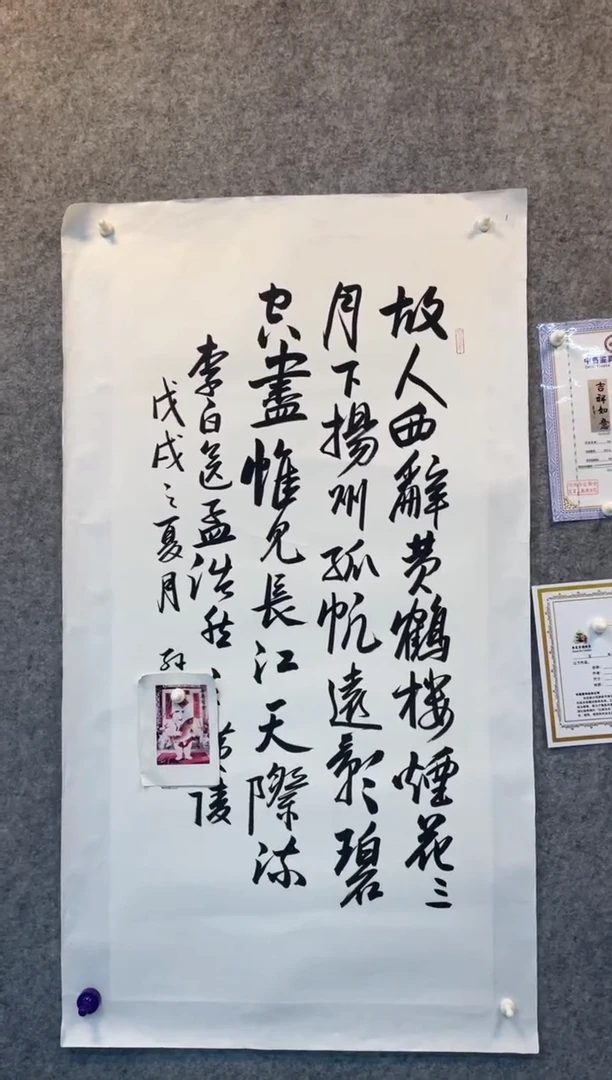 故人西辭黄鶴楼煙花三
月下揚州孤帆遠影碧
空盡惟見長江天際流
李白送孟浩然 廣陵
戊戌之夏月 孙
吉祥如意